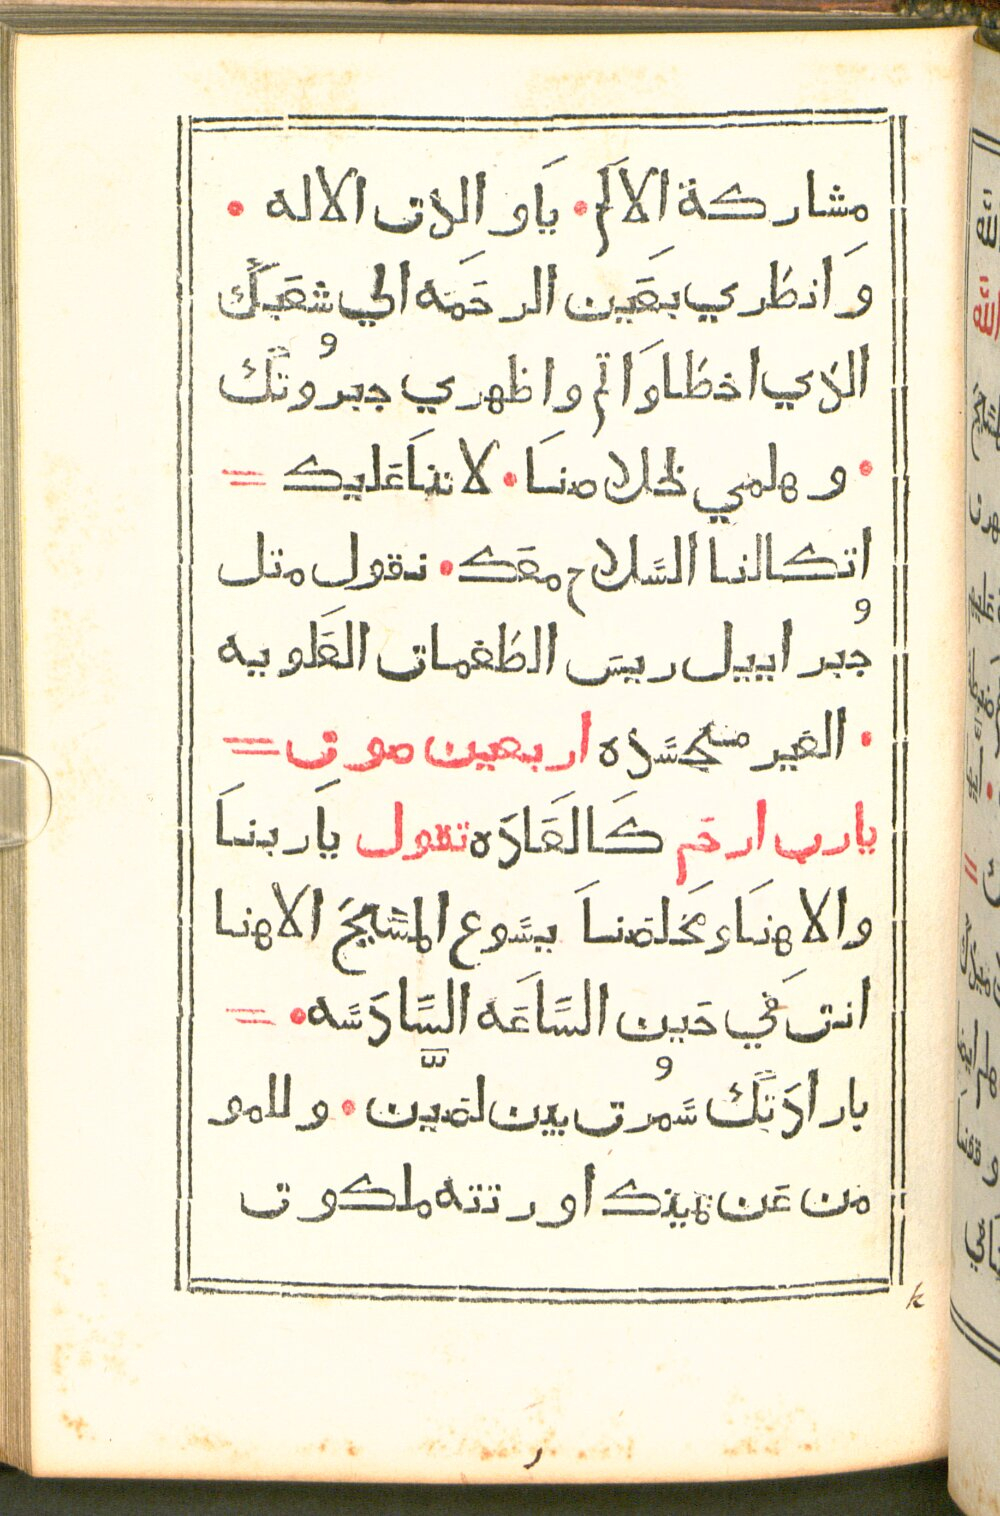 مشاركة الالم • يا والدت الاله •
وانظري بعين الرحمه الي شعبك
الذي اخطا واثم واظهري جبروتك
• وهلمي لخلاصنا • لاننا عليك =
اتكالنا السلاح معك • نقول متل
جبراييل ريس الطغمات العلويه
• الغير متجسده اربعين موت =
يارب ارحم كالعاده تقول ياربنا
والاهنا ومخلصنا يسوع المسيح الاهنا
انت في حين الساعه السادسه • =
بارادتك سمرت بين لصين • وللمو
من عن يمينك اورتته ملكوت
k